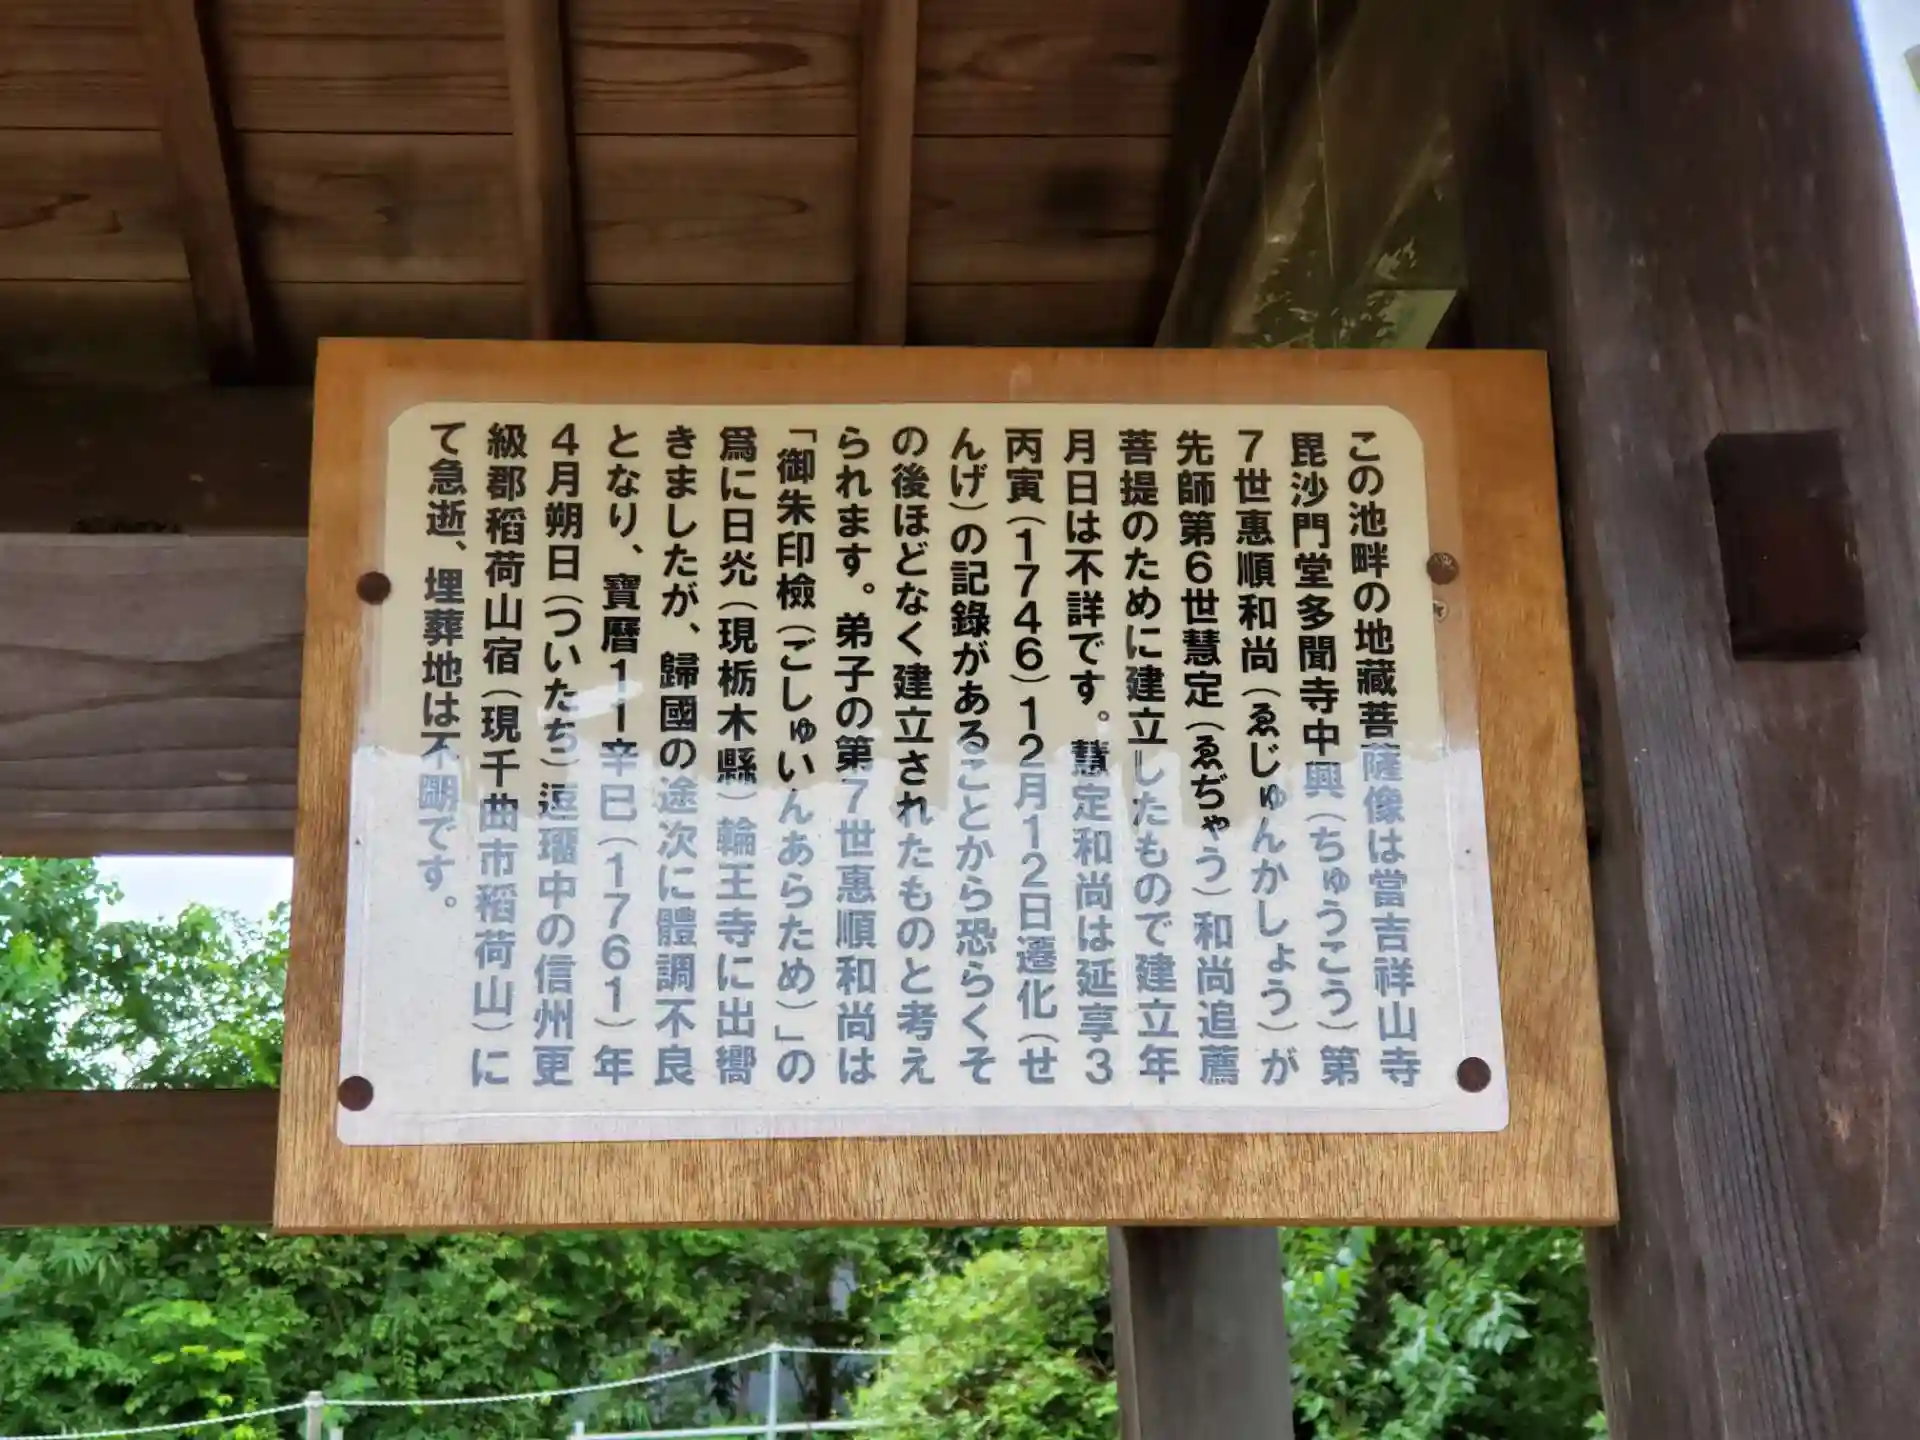 この池畔の地藏菩薩像は當吉祥山寺
毘沙門堂多聞寺中興（ちゅうこう）第
７世惠順和尚（ゑじゅんかしょう）が
先師第６世慧定（ゑぢゃう）和尚追薦
菩提のために建立したもので建立年
月日は不詳です。慧定和尚は延享３
丙寅（１７４６）１２月１２日遷化（せ
んげ）の記錄があることから恐らくそ
の後ほどなく建立されたものと考え
られます。弟子の第７世惠順和尚は
「御朱印檢（ごしゅいんあらため）」の
爲に日灮（現栃木縣）輪王寺に出嚮
きましたが、歸國の途次に體調不良
となり、寶暦１１辛巳（１７６１）年
４月朔日（ついたち）逗瑠中の信州更
級郡稻荷山宿（現千曲市稻荷山）に
て急逝、埋葬地は不朙です。